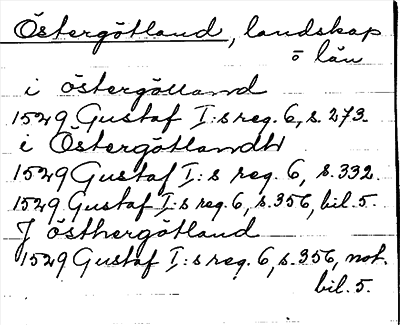 Östergötland, landskap
o län
i östergötland
1529 Gustaf I:s reg. 6, s. 273.
i Östergötlandh
1529 Gustaf I:s reg. 6, s. 332.
1529 Gustaf I:s reg. 6, s. 356, bil. 5.
J östhergötland
1529 Gustaf I:s reg. 6, s. 356, not.
bil. 5.